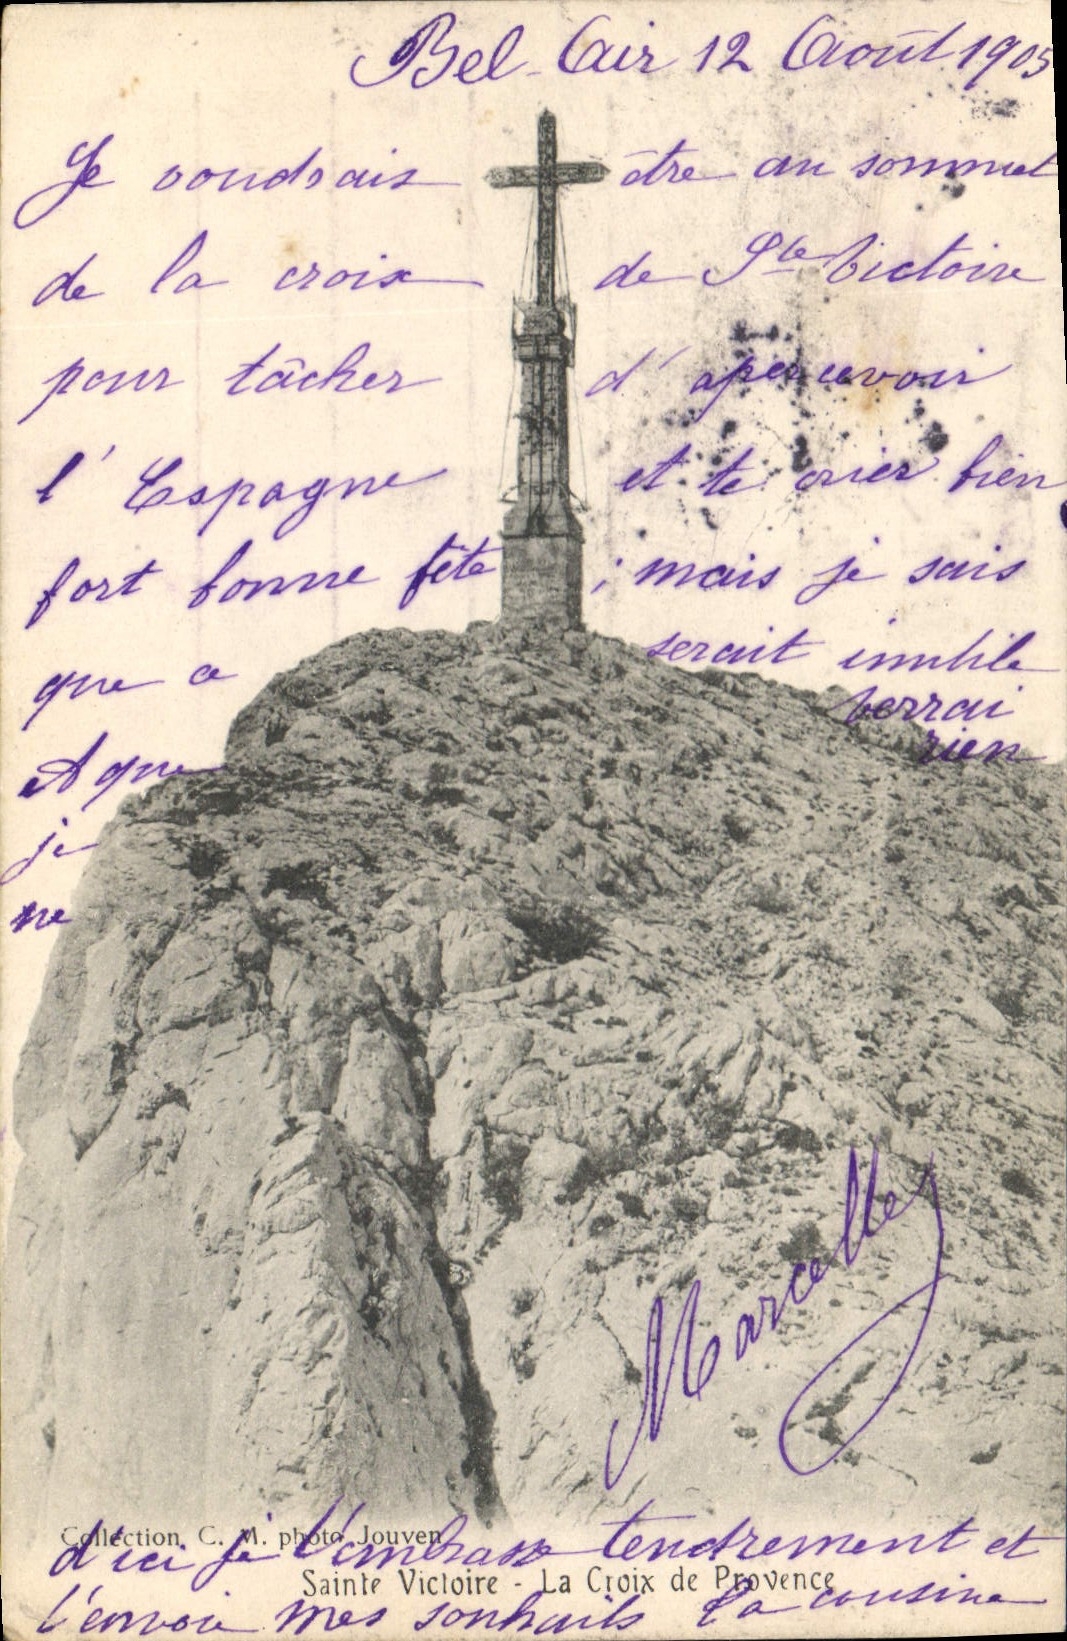 Bel-Air 12 Août 1905
Je voudrais être au sommet
de la croix de Ste Victoire
pour tâcher d'apercevoir
l'Espagne et te crier bien
fort bonne fête ; mais je sais
que ce serait inutile
et que je ne verrai rien
Marcelle
d'ici je t'embrasse tendrement et
t'envoie mes souhaits ta cousine
Collection C. M. photo Jouven
Sainte Victoire - La Croix de Provence